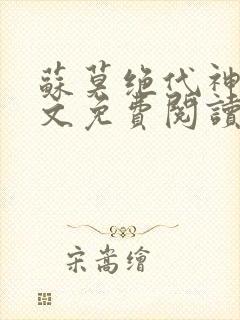 蘇莫绝代神
文免費閱讀
宋嵩繪